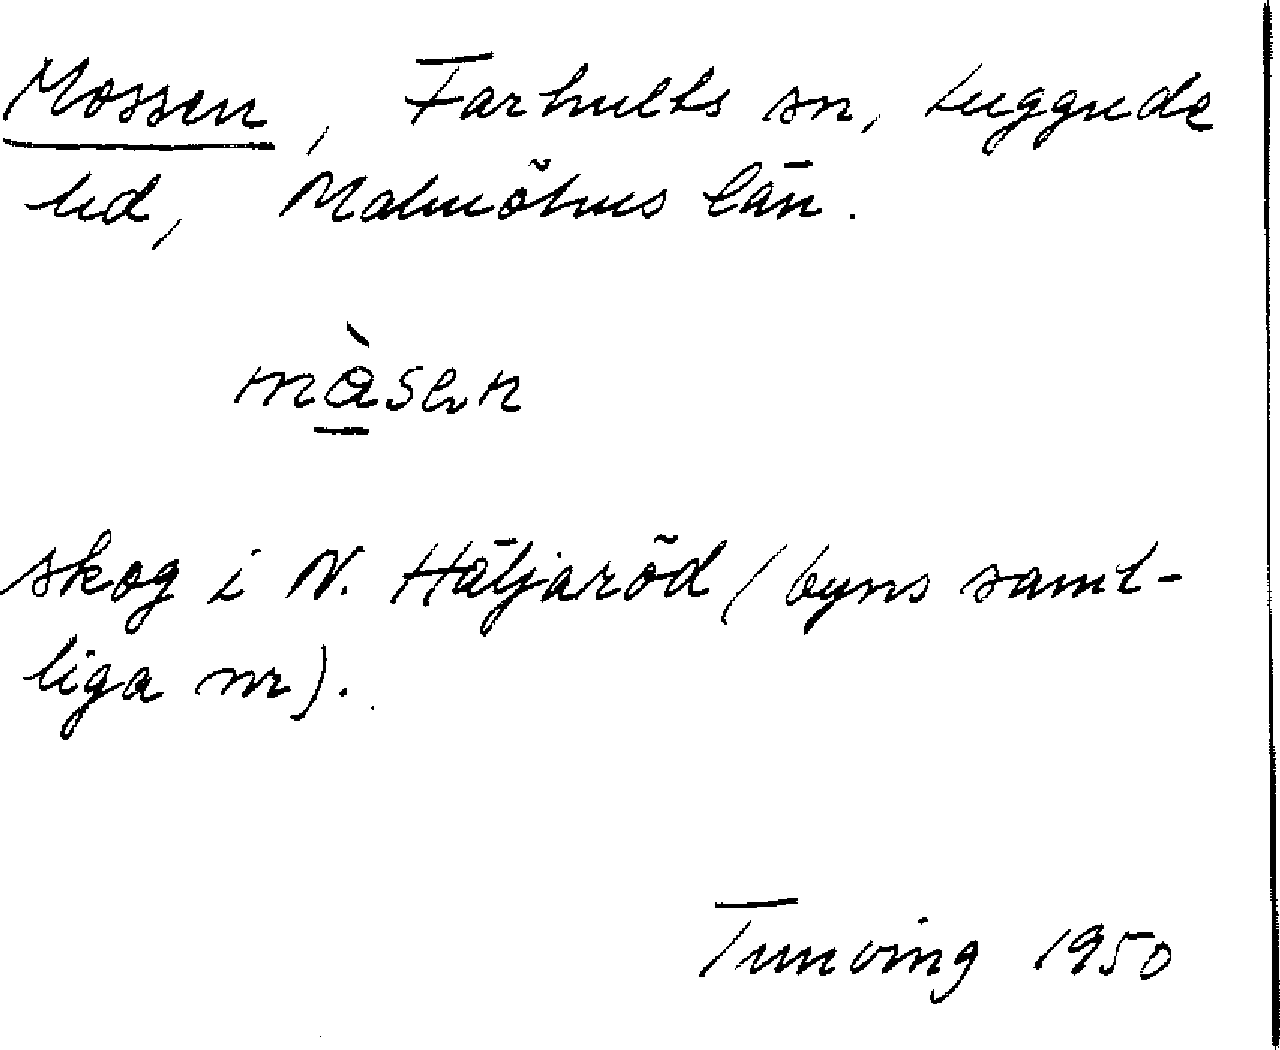 Mossen, Farhults sn, Luggude
hd, Malmöhus län.
màsen
skog i N. Häljaröd (byns samt-
liga nr).
Tunving 1950